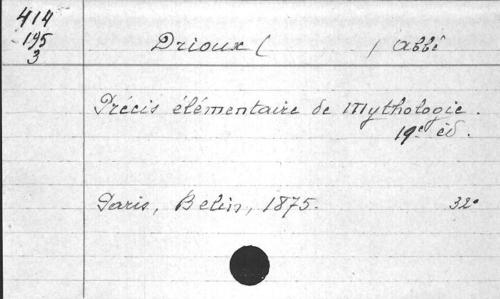 414
195
3
Drioux ( ) abbé
Précis élémentaire de Mythologie.
19e éd.
Paris, Belin, 1875. 32°